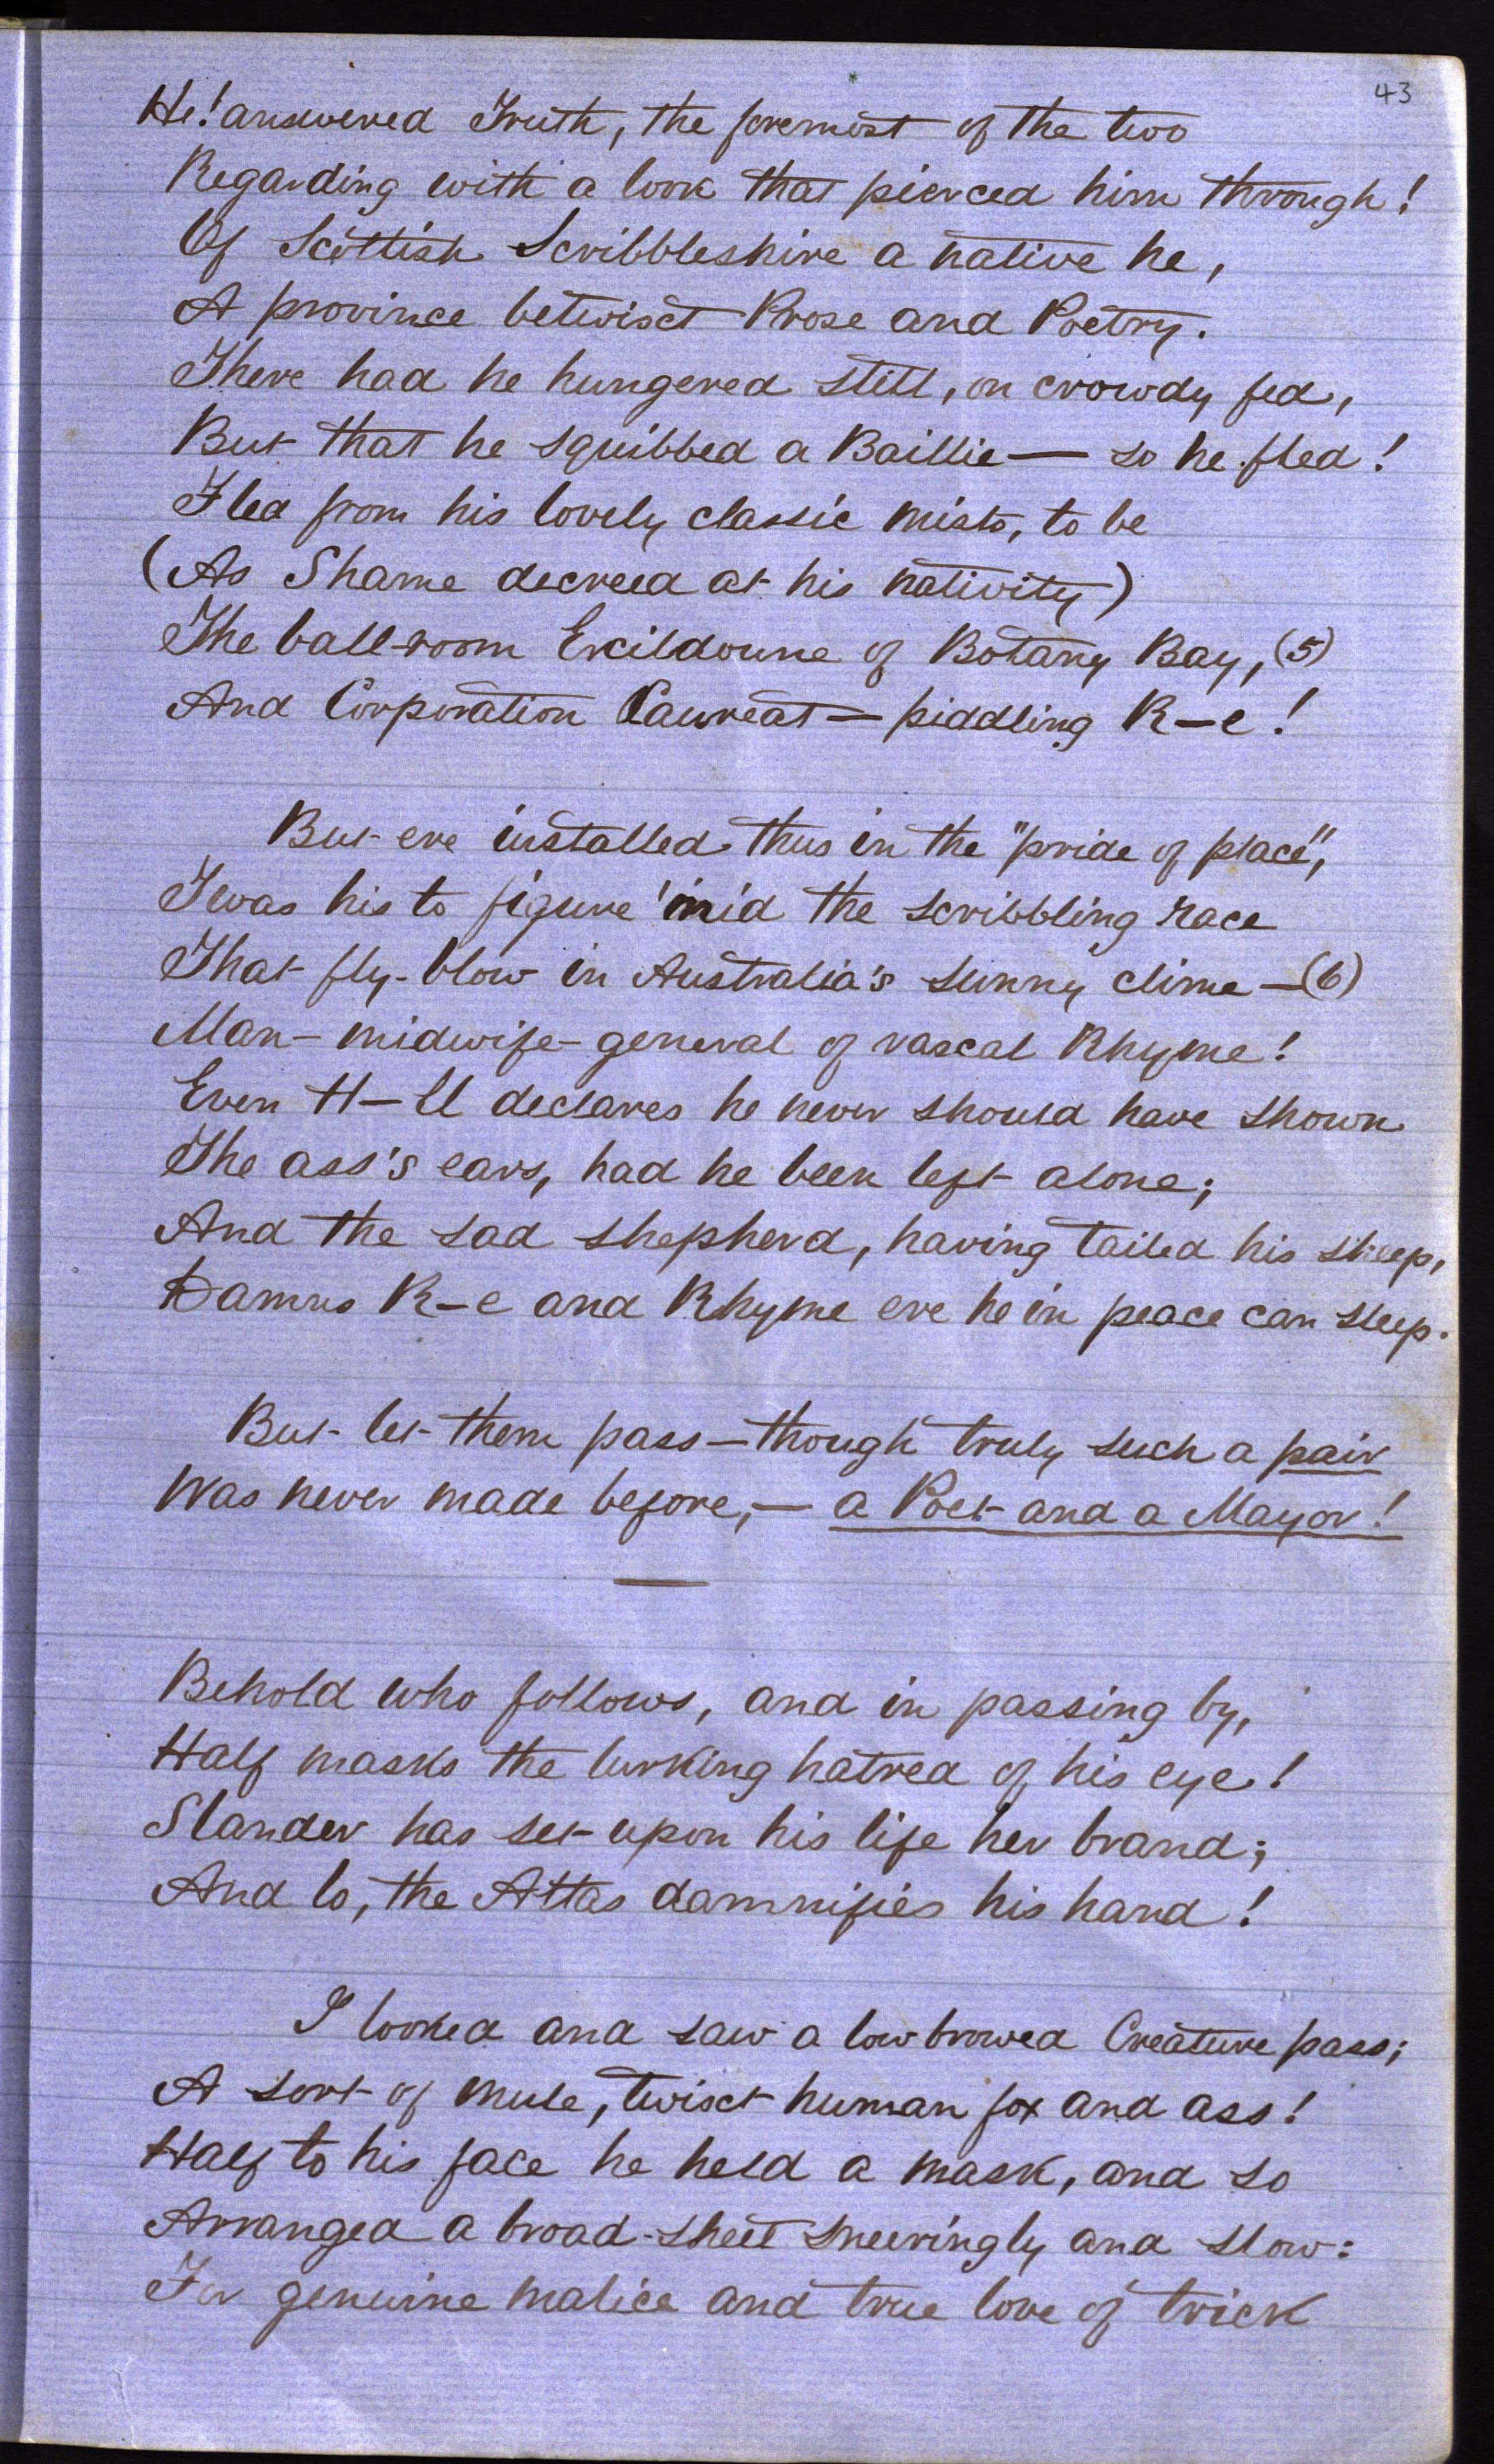 43
He! answered Truth, the foremost of the two
Regarding with a look that pierced him through!
Of Scottish Scribbleshire a native he,
A province betwixt Prose and Poetry.
There had he hungered still, on crowdy fed,
But that he squibbed a Baillie — so he fled!
Fled from his lovely classic mists, to be
(As Shame decreed at his nativity)
The ball-room Ercildoune of Botany Bay, (5)
And Corporation Laureat — piddling R–e!
But ere installed thus in the "pride of place",
Twas his to figure 'mid the scribbling race
That fly-blow in Australia's sunny clime — (6)
Man-midwife-general of rascal Rhyme!
Even H–ll declares he never should have shown
The ass's ears, had he been left alone;
And the sad shepherd, having tailed his sheep,
Damns R–e and Rhyme ere he in peace can sleep.
But let them pass — though truly such a pair
Was never made before, — a Poet and a Mayor!
Behold who follows, and in passing by,
Half masks the lurking hatred of his eye!
Slander has set upon his life her brand;
And lo, the Attas damnifies his hand!
I looked and saw a low browed Creature pass;
A sort of mule, twixt human fox and ass!
Half to his face he held a mask, and so
Arranged a broad-sheet sneeringly and slow:
For genuine malice and true love of trick